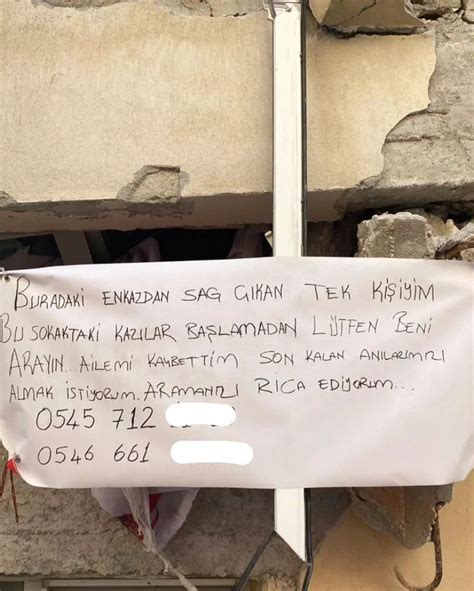 BURADAKİ ENKAZDAN SAG ÇIKAN TEK KİŞİYİM
BU SOKAKTAKİ KAZILAR BAŞLAMADAN LÜTFEN BENİ
ARAYIN... AİLEMİ KAYBETTİM SON KALAN ANILARIMIZI
ALMAK İSTİYORUM. ARAMANIZI RİCA EDİYORUM...
0545 712
0546 661